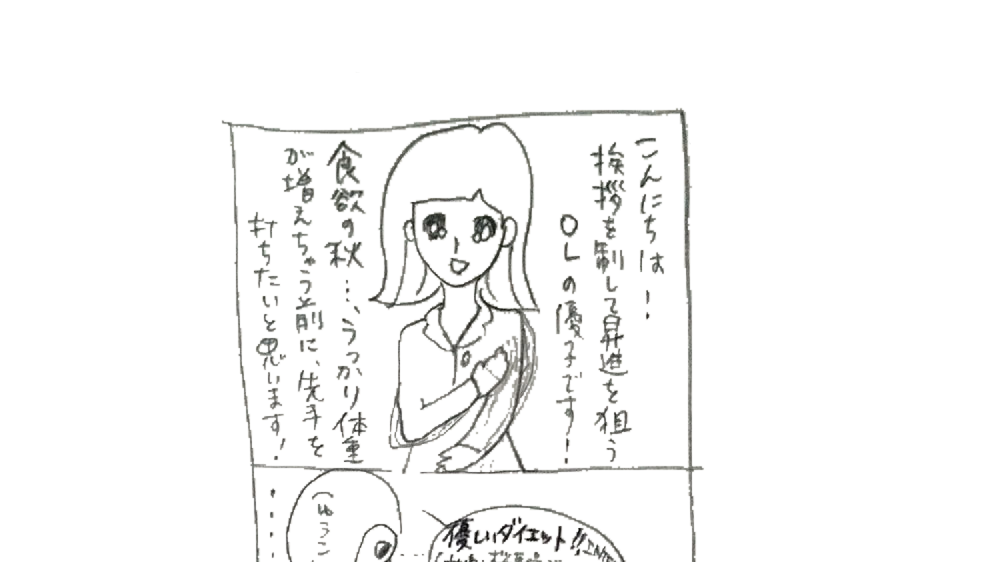 こんにちは！
挨拶を制して昇進を狙う
OLの優子です！
食欲の秋…、うっかり体重
が増えちゃう前に、先手を
打ちたいと思います！
優しいダイエット!!